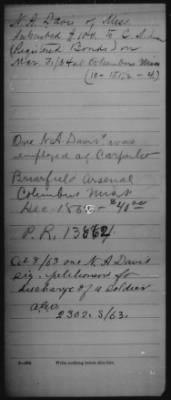 N. A. Davis of Miss
Subscribed $100. to C. S. Loan
(Registered Bonds) on
Mar. 31/64 at Columbus Miss
One N A Davis was
employed as Carpenter
Briarfield Arsenal
Columbus Miss
Dec. 1863 - $40.00
P. R. 13662
Oct 8/63 one N. A. Davis
sig. petitioners for
discharge of a Soldier
also
2302. S/63.
Write nothing below this line.